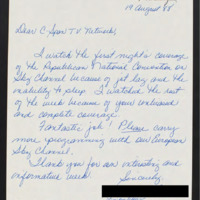 19 August 88
Dear C-Span T.V. Network,
I watched the first night's coverage
of the Republican National Convention on
Sky Channel because of jet lag and the
inability to sleep. I watched the rest
of the week because of your unbiased
and complete coverage.
Fantastic job! Please carry
more programming with our European
Sky Channel.
Thank you for an interesting and
informative week.
Sincerely,